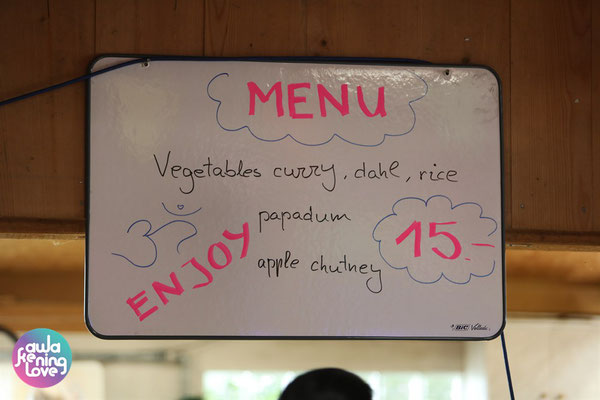 MENU
Vegetables curry, dahl, rice
papadum
apple chutney
15.–
ENJOY
ॐ
BIC Velleda
awakening
love